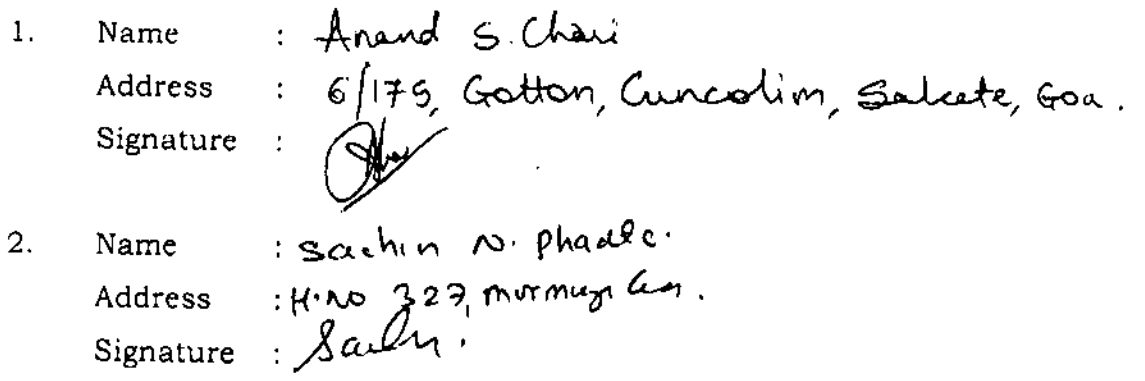 1. Name : Anand S. Chari
Address : 6/175, Gotton, Cuncolim, Salcete, Goa.
Signature :
2. Name : Sachin N. Phadte.
Address : H.No 327, Murmugao Goa.
Signature : Sachin.